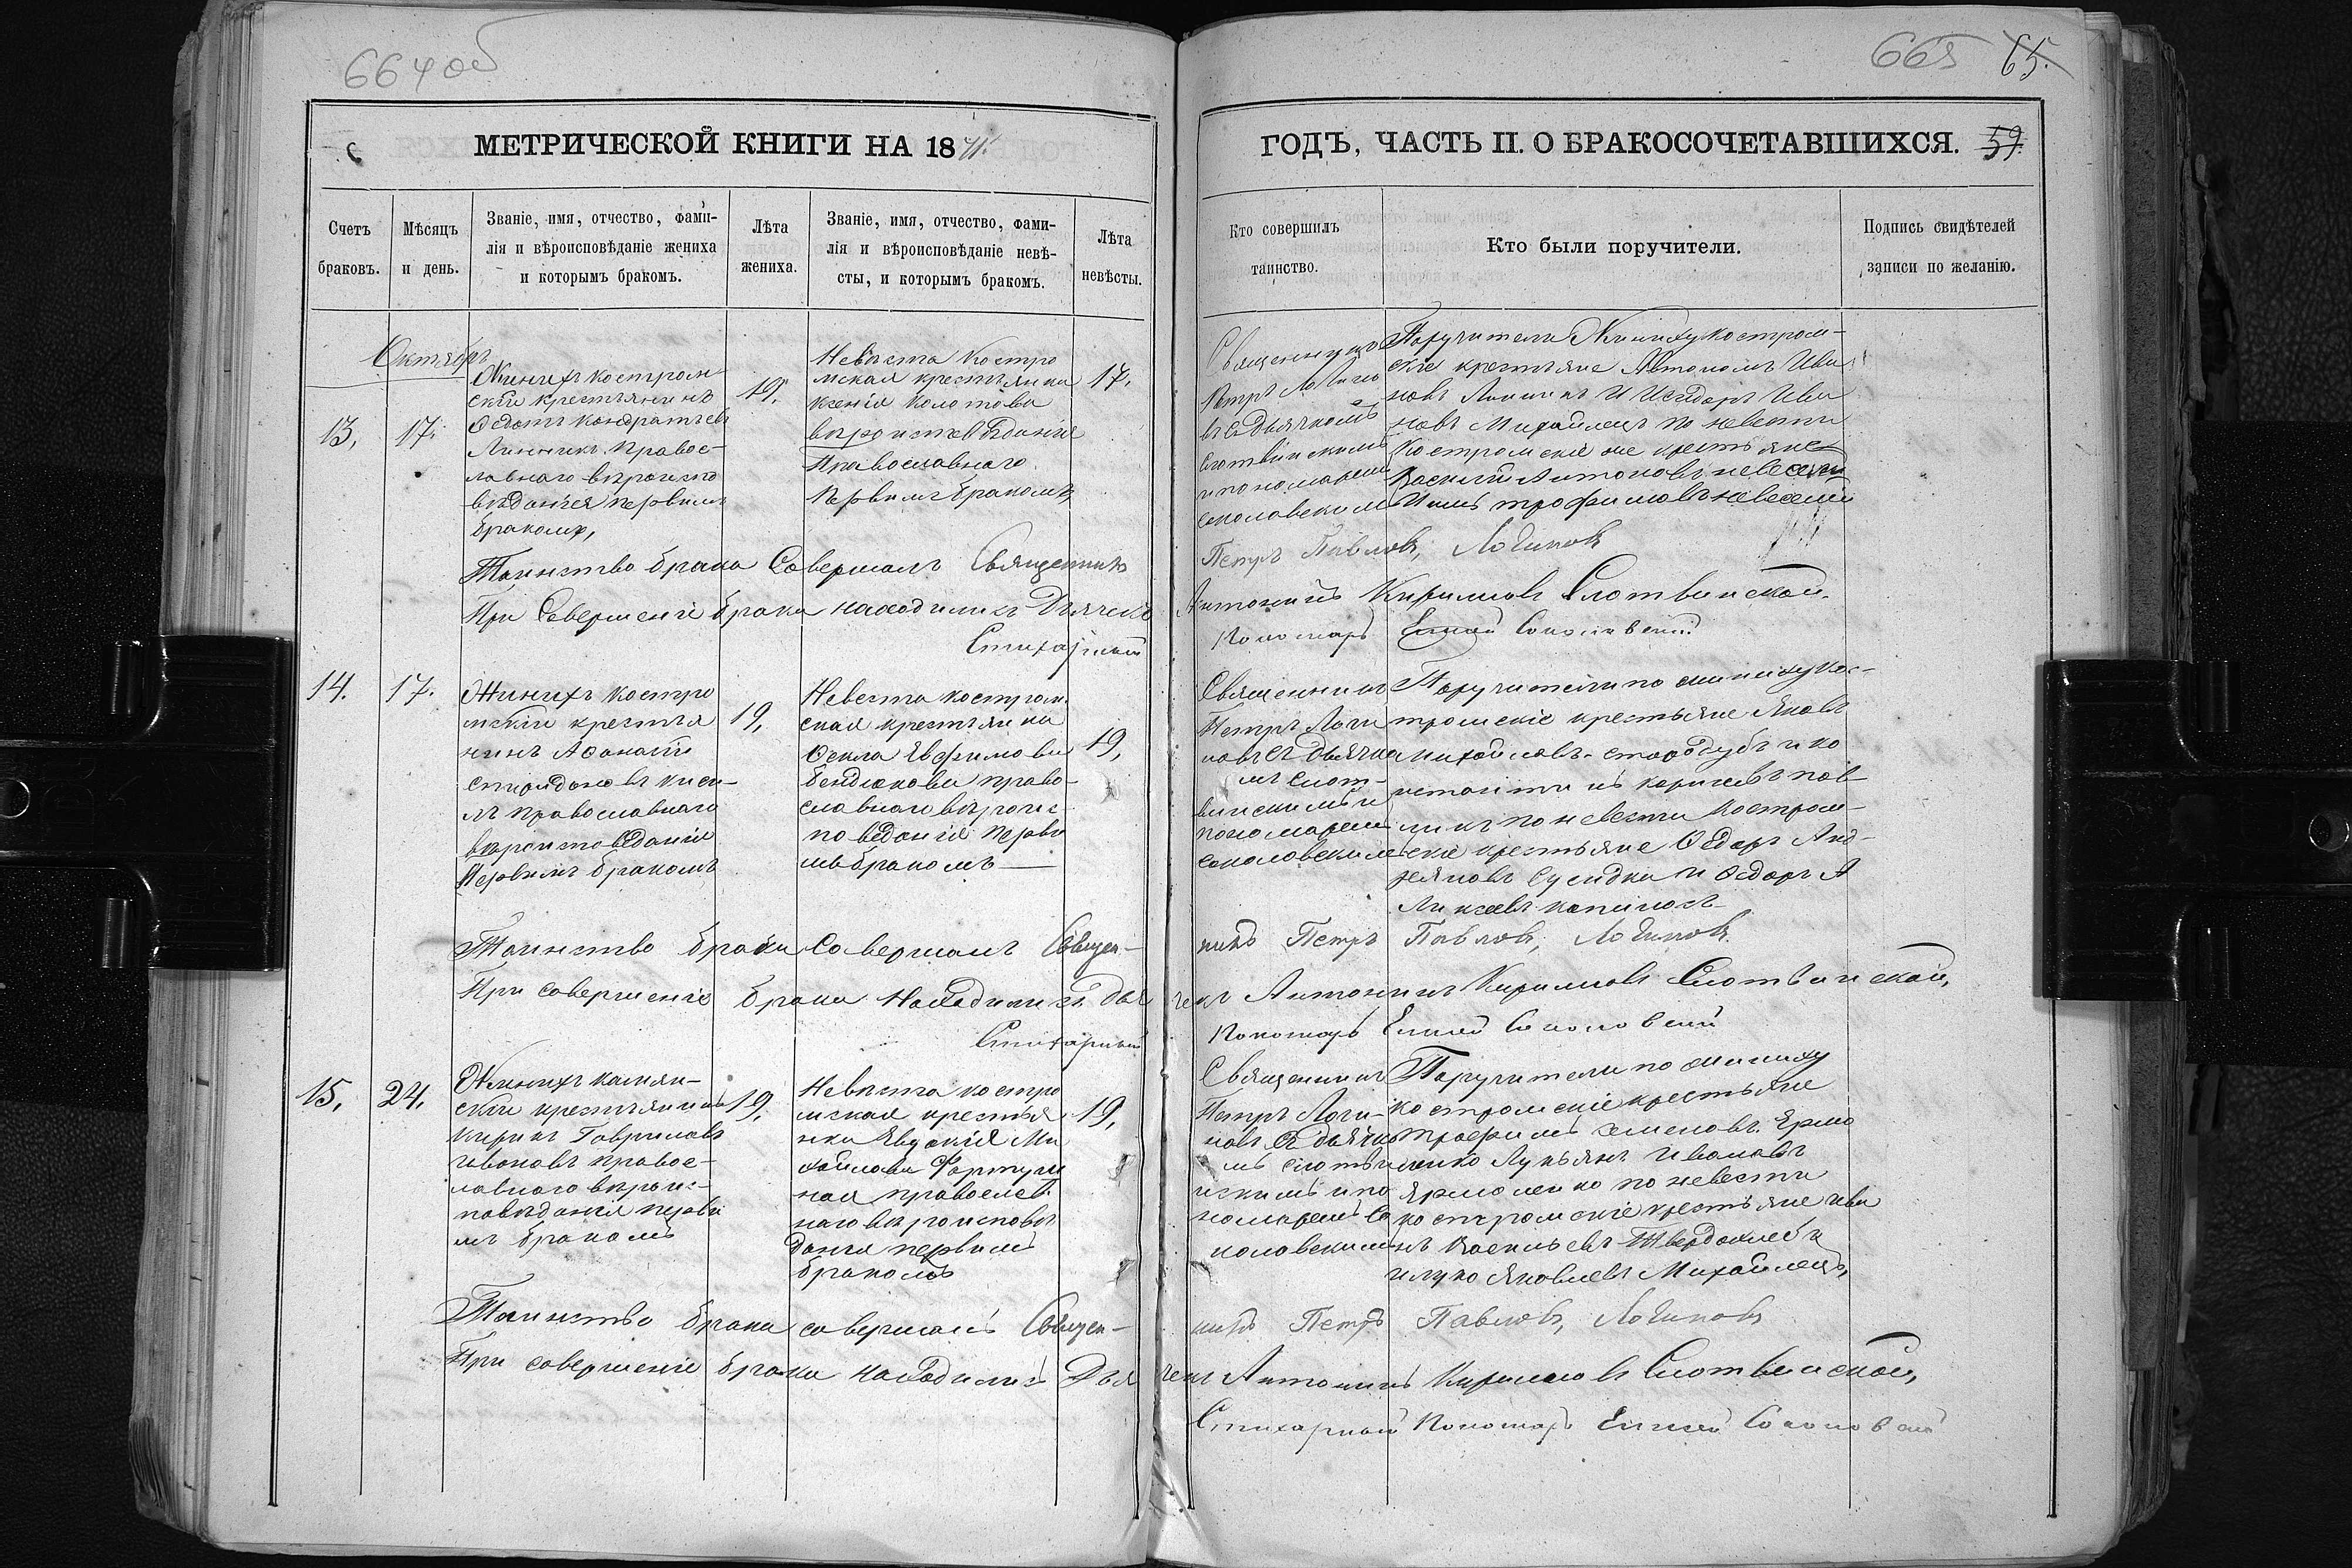 664 об
665 65.
МЕТРИЧЕСКОЙ КНИГИ НА 1871.
ГОДЪ, ЧАСТЬ II. О БРАКОСОЧЕТАВШИХСЯ. 59.
Счетъ браковъ.
Мѣсяцъ и день.
Званіе, имя, отчество, фами-
лія и вѣроисповѣданіе жениха
и которымъ бракомъ.
Лѣта жениха.
Званіе, имя, отчество, фами-
лія и вѣроисповѣданіе невѣ-
сты, и которымъ бракомъ.
Лѣта невѣсты.
Кто совершилъ таинство.
Кто были поручители.
Подпись свидѣтелей
записи по желанію.
Октябрь
13,
17.
Жинихъ костром
скій крестьянинъ
Федотъ Кондратьевъ
Линникъ. Правос-
лавнаго вѣроиспо
вѣданія первимъ
бракомъ,
19,
Невѣста Костро
мская крестьянка
Ксенія Колотова
вѣроисповѣданія
Православнаго
первимъ бракомъ
17.
Священникъ
Петръ Логино
въ съ дьячкомъ
Слотвинскимъ
и пономаремъ
Соколовскимъ
Поручители Жиниху костром-
скіе крестьяне Автономъ Ива
новъ Линникъ И Исидоръ Ива
новъ Михайлецъ по невести
Костромскіе же крестьяне
Василій Антоновъ невесели
Иванъ трофимовъ невеселій
Таинство брака Совершалъ Священникъ
Петръ Павловъ, Логиновъ
При Совершеніе брака находились Дьячекъ
Антонинъ Кириловъ Слотвинской.
Стихарный
Пономарь Соколовскій
14.
17.
Жинихъ костро
мскій крестья
нинъ Афанасій
Спиридоновъ киси-
ль православнаго
вѣроисповѣданія
Первимъ бракомъ
19,
Невеста костром.
ская крестьянка
Фекла Евфимова
бендюкова право-
славнаго вѣроис
поведанія перви
мъ бракомъ
19,
Священникъ
Петръ Логи
новъ съ дьячко
мъ Слот-
винскимъ и
пономаремъ
соколовскимъ
Поручители по жиниху кос-
тромскіе крестьяне Яковъ
михайловъ. стародубъ и ко
нстантинъ
ликъ по невести Костром-
скіе крестьяне Федоръ Анд-
реяновъ и Федоръ А
ликсевъ
Таинство брака Совершалъ Священ-
никъ Петръ Павловъ, Логиновъ.
При совершеніе брака Находились дья
чекъ Антонинъ Кириловъ Слотвинской,
Стихарный
Пономарь Соколовскій
15,
24,
Жинихъ камян-
скій крестьянинъ
Кирикъ Гавриловъ
правос-
лавнаго вѣроис-
повѣданія перви
мъ бракомъ
19,
Невѣста костро
мская крестья
нка Явдокія Ми
хайлова Фортуш
ная православ
наго вѣроисповѣ
данія первимъ
бракомъ
19,
Священникъ
Петръ Логи-
новъ съ дьячко
мъ слотви
нскимъ и по
номаремъ Со
коловскимъ
Поручители по жиниху
костромскіе крестьяне
трофимъ семеновъ. Ермо
ленко Лукьянъ Ивановъ
Ярмоленко по невести
костромскіе крестьяне ива
нъ Васильевъ Твердохлебъ
и луко Яковлевъ Михайлецъ,
Таинство брака совершалъ Священ-
никъ Петръ Павловъ, Логиновъ
При совершеніе брака Находились Дья
чекъ Антонинъ Кириловъ Слотвинской,
Стихарный Пономарь Соколовскій